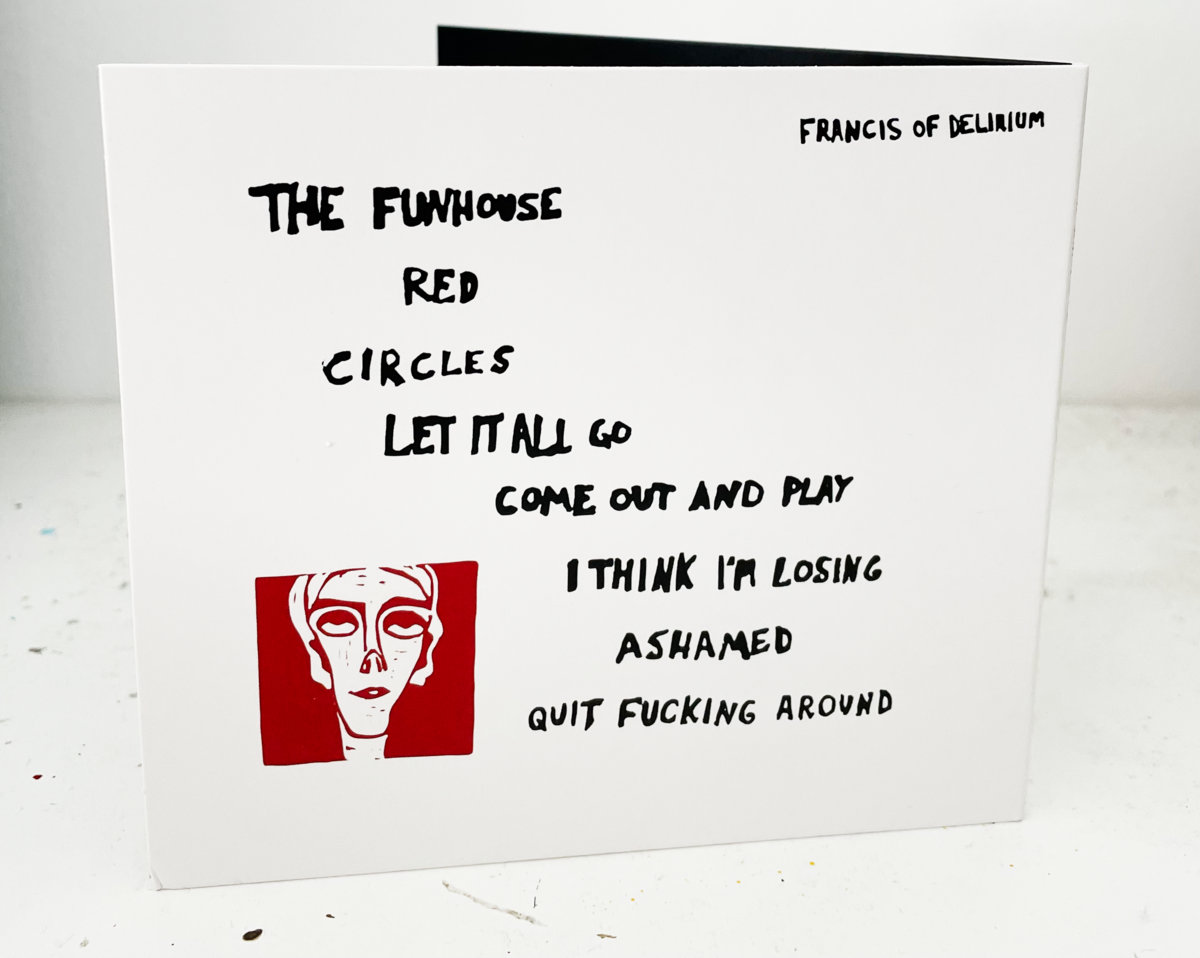 FRANCIS OF DELIRIUM
THE FUNHOUSE
RED
CIRCLES
LET IT ALL GO
COME OUT AND PLAY
I THINK I'M LOSING
ASHAMED
QUIT FUCKING AROUND